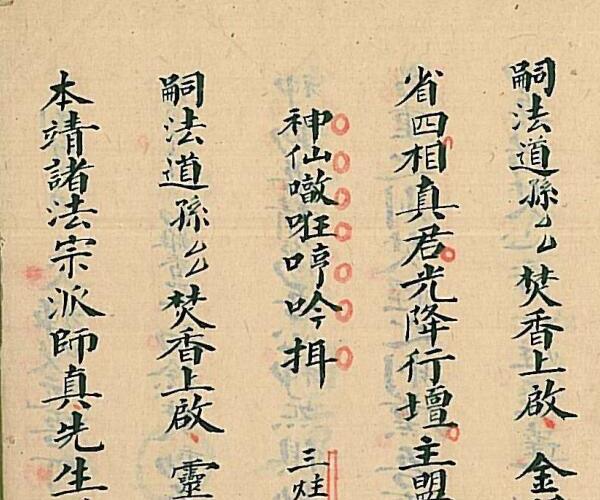 嗣法道孫厶焚香上啟金
省四相真君光降行壇主盟
神仙噉哐哼吟揖 三炷
嗣法道孫厶焚香上啟靈
本靖諸法宗派師真先生